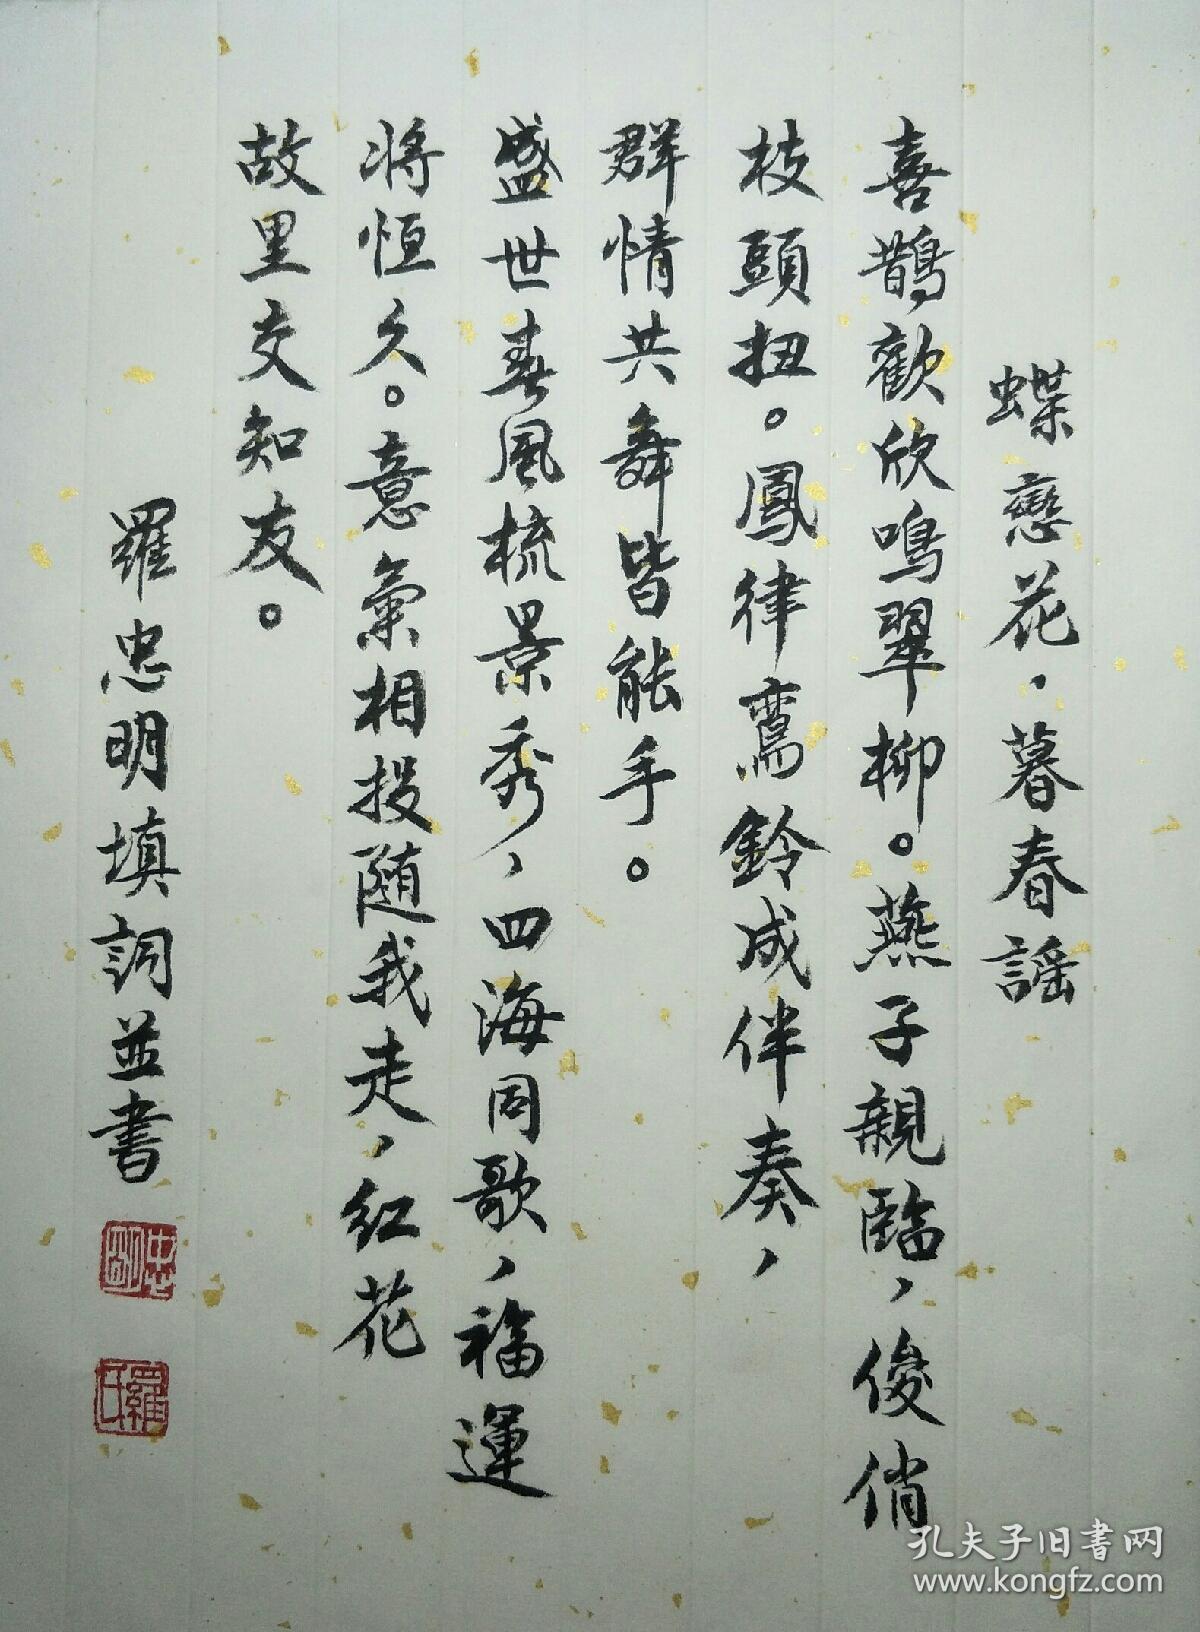 蝶戀花，暮春謠
喜鵲歡欣鳴翠柳。燕子親臨，俊俏
枝頭扭。鳳律鸞鈴成伴奏，
群情共舞皆能手。
盛世春風梳景秀，四海同歌，福運
将恒久。意氣相投随我走，紅花
故里交知友。
羅忠明填詞並書
忠明
羅氏
孔夫子旧书网
www.kongfz.com